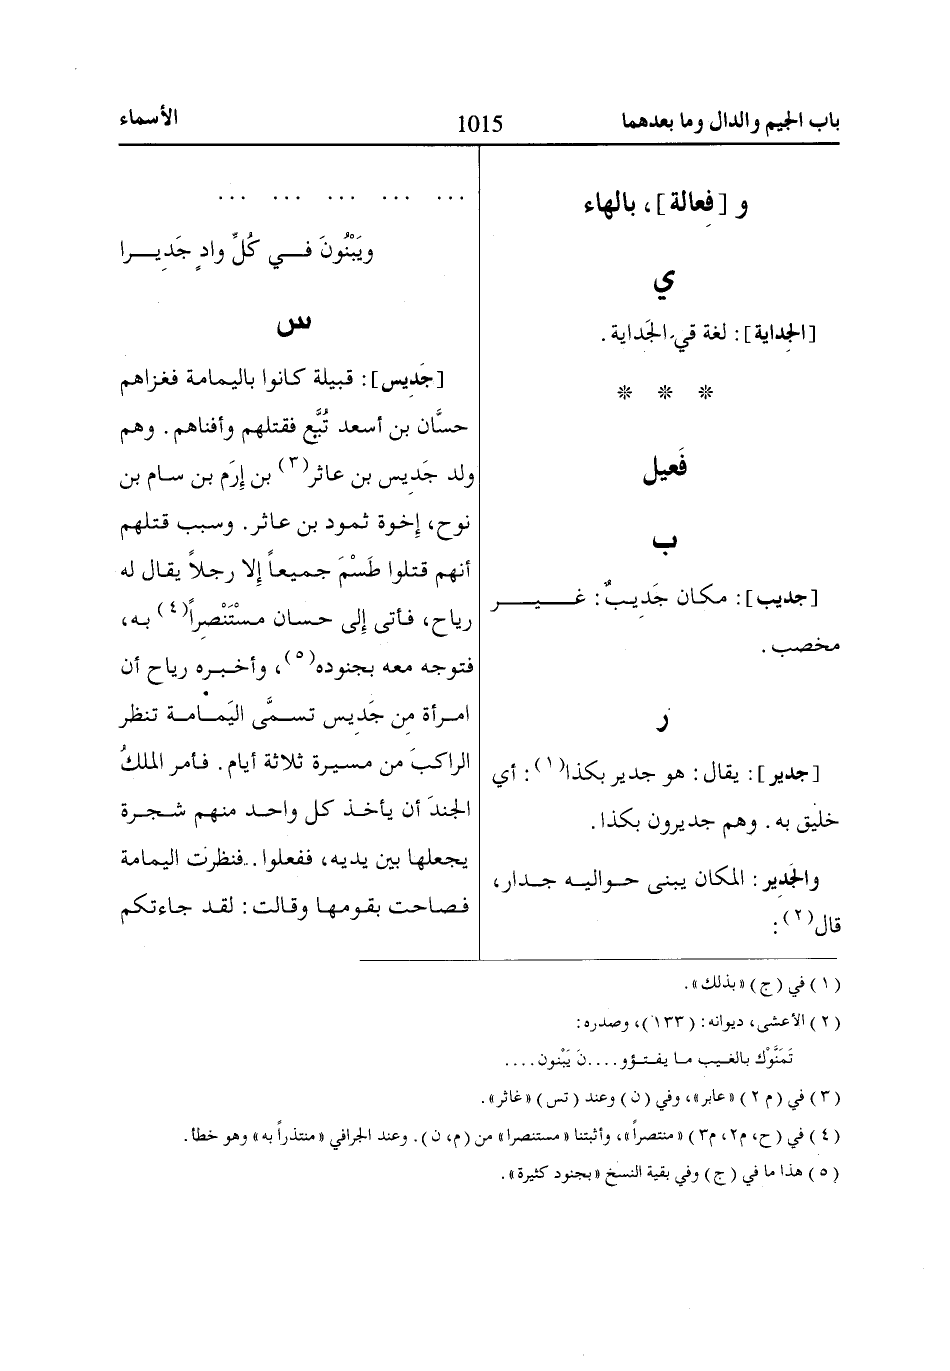 باب الجيم والدال وما بعدهما 1015 الأسماء
و [فِعالة]، بالهاء
ي
[الجِداية]: لغة قي الجَداية.
* * *
فَعيل
ب
[جديب]: مكان جَدِيبٌ: غـــيـــر
مخصب.
ر
[جدير]: يقال: هو جدير بكذا(١): أي
خليق به. وهم جديرون بكذا.
والجَدِير: المكان يبنى حواليه جدار،
قال(٢):
... ... ... ... ...
ويَبْنُونَ في كُلِّ وادٍ جَدِيرا
س
[جَدِيس]: قبيلة كانوا باليمامة فغزاهم
حسَّان بن أسعد تُبَّع فقتلهم وأفناهم. وهم
ولد جَدِيس بن عاثر(٣) بن إرَم بن سام بن
نوح، إخوة ثمود بن عاثر. وسبب قتلهم
أنهم قتلوا طَسْمَ جميعاً إلا رجلاً يقال له
رياح، فأتى إلى حسان مسْتَنْصِراً(٤) به،
فتوجه معه بجنوده(٥)، وأخبره رياح أن
امرأة مِن جَدِيس تسمَّى اليَمامة تنظر
الراكبَ من مسيرة ثلاثة أيام. فأمر الملكُ
الجندَ أن يأخذ كل واحد منهم شجرة
يجعلها بين يديه، ففعلوا... فنظرت اليمامة
فصاحت بقومها وقالت: لقد جاءتكم
(١) في (ج) «بذلك».
(٢) الأعشى، ديوانه: (١٣٣)، وصدره:
تَمَنَّوْك بالغيب ما يفتؤو....نَ يَبْنون....
(٣) في (م ٢) «عابر»، وفي (ن) وعند (تس) «غاثر».
(٤) في (ح، م٢، م٣) «منتصراً»، وأثبتنا «مستنصرا» من (م، ن). وعند الجرافي «منتذراً به» وهو خطأ.
(٥) هذا ما في (ج) وفي بقية النسخ «بجنود كثيرة».